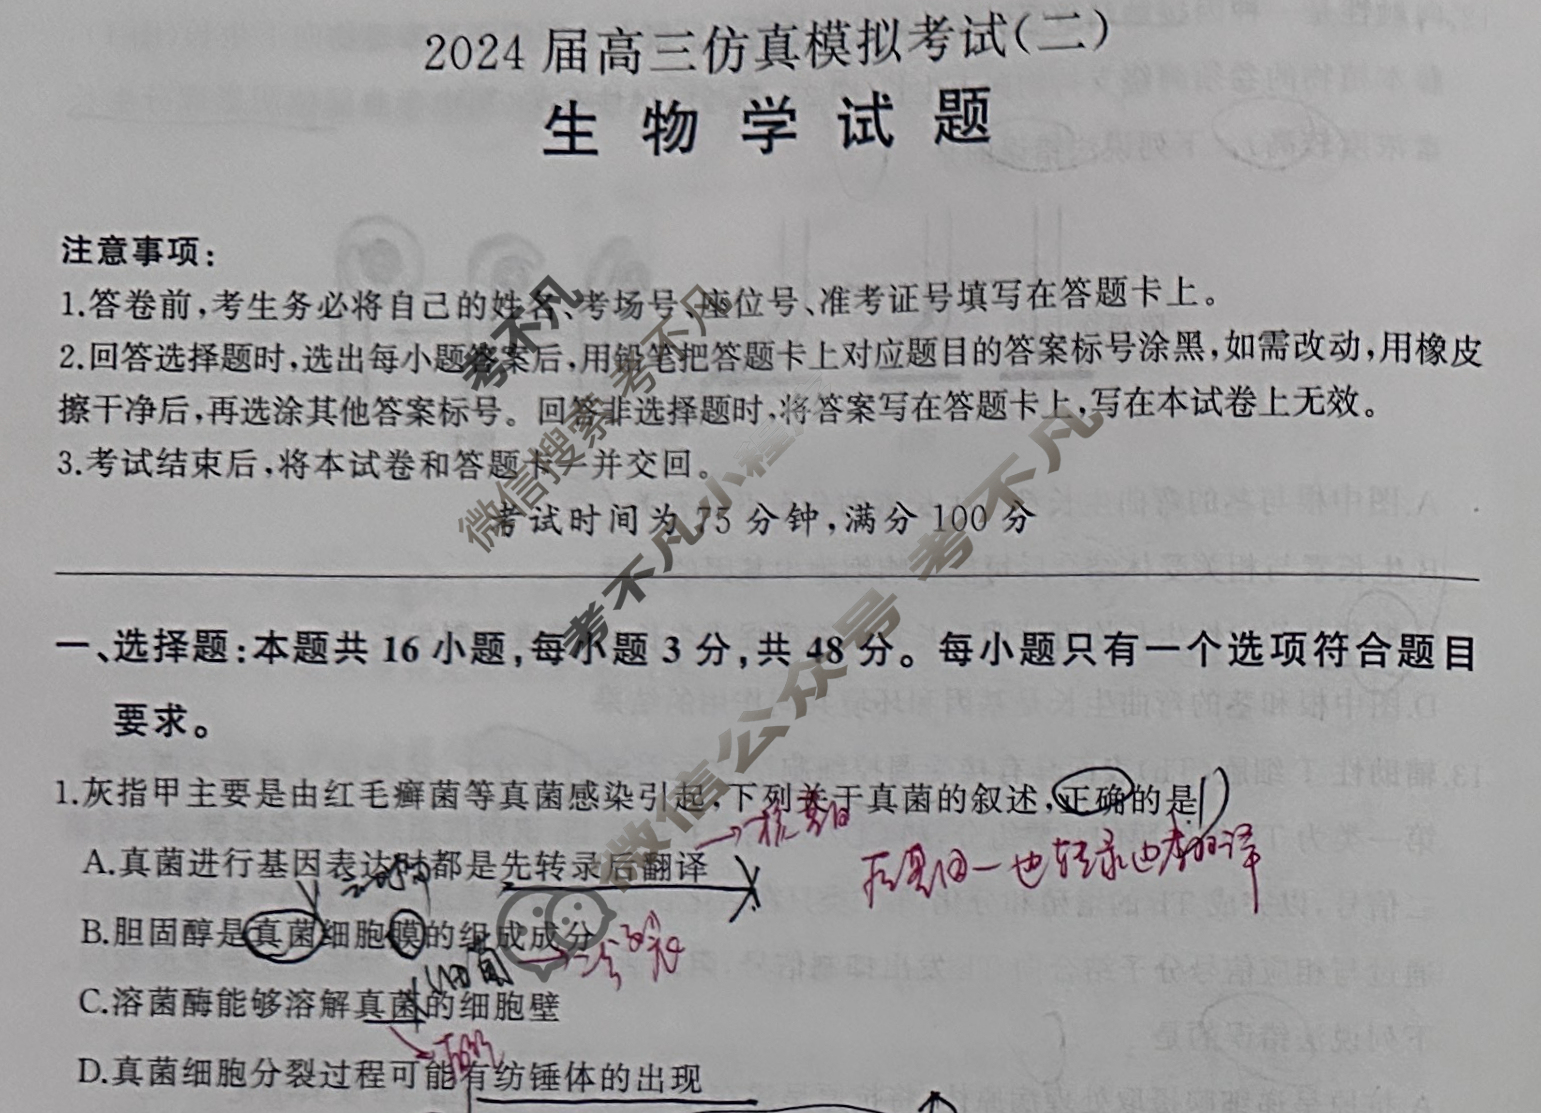 2024届高三仿真模拟考试(二)
生物学试题
注意事项:
1.答卷前,考生务必将自己的姓名、考场号、座位号、准考证号填写在答题卡上。
2.回答选择题时,选出每小题答案后,用铅笔把答题卡上对应题目的答案标号涂黑,如需改动,用橡皮
擦干净后,再选涂其他答案标号。回答非选择题时,将答案写在答题卡上,写在本试卷上无效。
3.考试结束后,将本试卷和答题卡一并交回。
考试时间为75分钟,满分100分
一、选择题:本题共16小题,每小题3分,共48分。每小题只有一个选项符合题目
要求。
1.灰指甲主要是由红毛癣菌等真菌感染引起,下列关于真菌的叙述,正确的是 D
A.真菌进行基因表达时都是先转录后翻译
B.胆固醇是真菌细胞膜的组成成分
C.溶菌酶能够溶解真菌的细胞壁
D.真菌细胞分裂过程可能有纺锤体的出现
考不凡
微信搜索 考不凡
考不凡小程序
微信公众号 考不凡